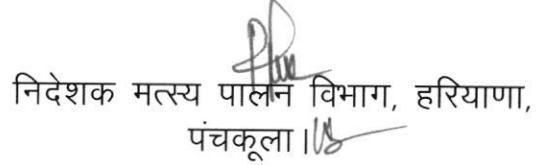 निदेशक मत्स्य पालन विभाग, हरियाणा,
पंचकूला।